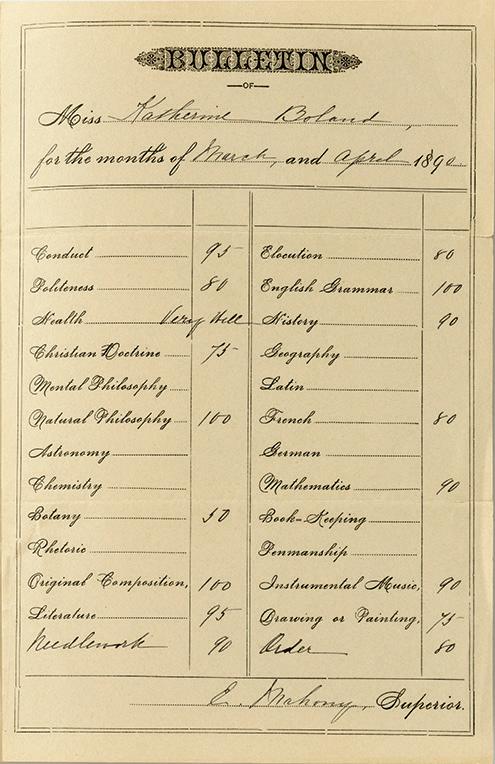 BULLETIN
OF
Miss Katherine Boland,
for the months of March, and April 1890
Conduct 95
Politeness 80
Health Very Well
Christian Doctrine 75
Mental Philosophy
Natural Philosophy 100
Astronomy
Chemistry
Botany 50
Rhetoric
Original Composition, 100
Literature 95
Needlework 90
Elocution 80
English Grammar 100
History 90
Geography
Latin
French 80
German
Mathematics 90
Book-Keeping
Penmanship
Instrumental Music, 90
Drawing or Painting, 75
Order 80
E. Mahony, Superior.